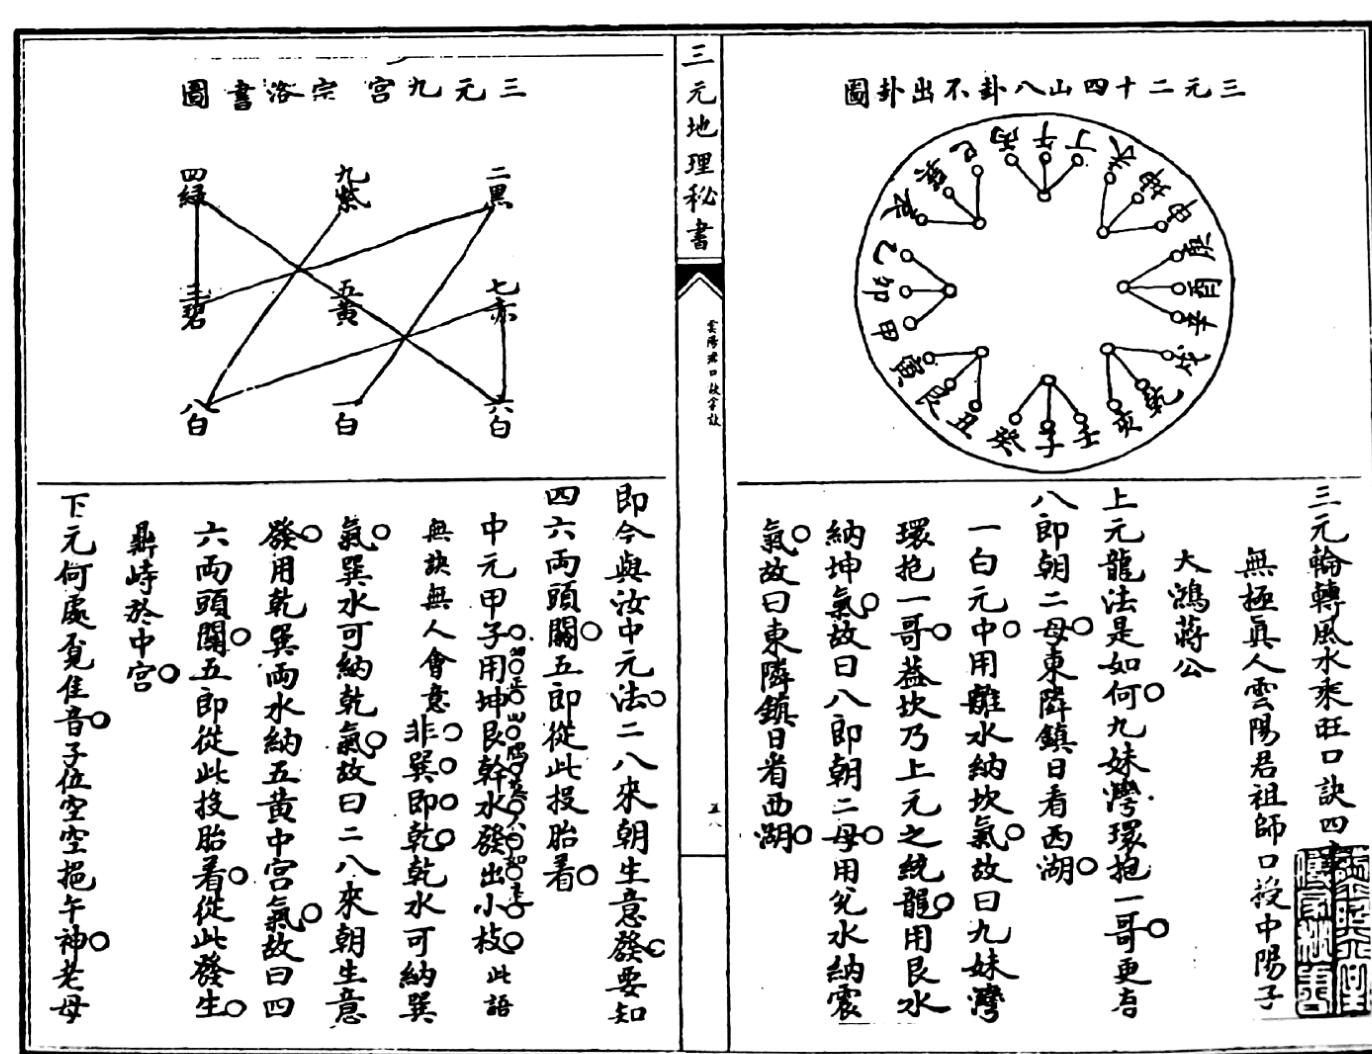 三元二十四山八卦不出卦圖
丙午丁
未坤申
庚酉辛
戌乾亥
壬子癸
丑艮寅
甲卯乙
辰巽巳
三元輪轉風水乘旺口訣四
無極真人雲陽君祖師口授中陽子
大鴻蔣公
上元龍法是如何九妹灣環抱一哥更有
八郎朝二母東隣鎮日看西湖
一白元中用離水納坎氣故曰九妹灣
環抱一哥蓋坎乃上元之統龍用艮水
納坤氣故曰八郎朝二母用兌水納震
氣故曰東隣鎮日省西湖
三元地理秘書
雲陽君口
五八
三元九宮宗洛書圖
四綠
九紫
二黑
三碧
五黃
七赤
八白
一白
六白
即今與汝中元法二八來朝生意發要知
四六両頭關五郎從此投胎着
中元甲子用坤艮幹水發出小枝此語
無訣無人會意非巽即乾乾水可納巽
氣巽水可納乾氣故曰二八來朝生意
發用乾巽両水納五黃中宮氣故曰四
六両頭關五郎從此投胎着從此發生
鼎峙於中宮
下元何處覓佳音子位空空挹午神老母